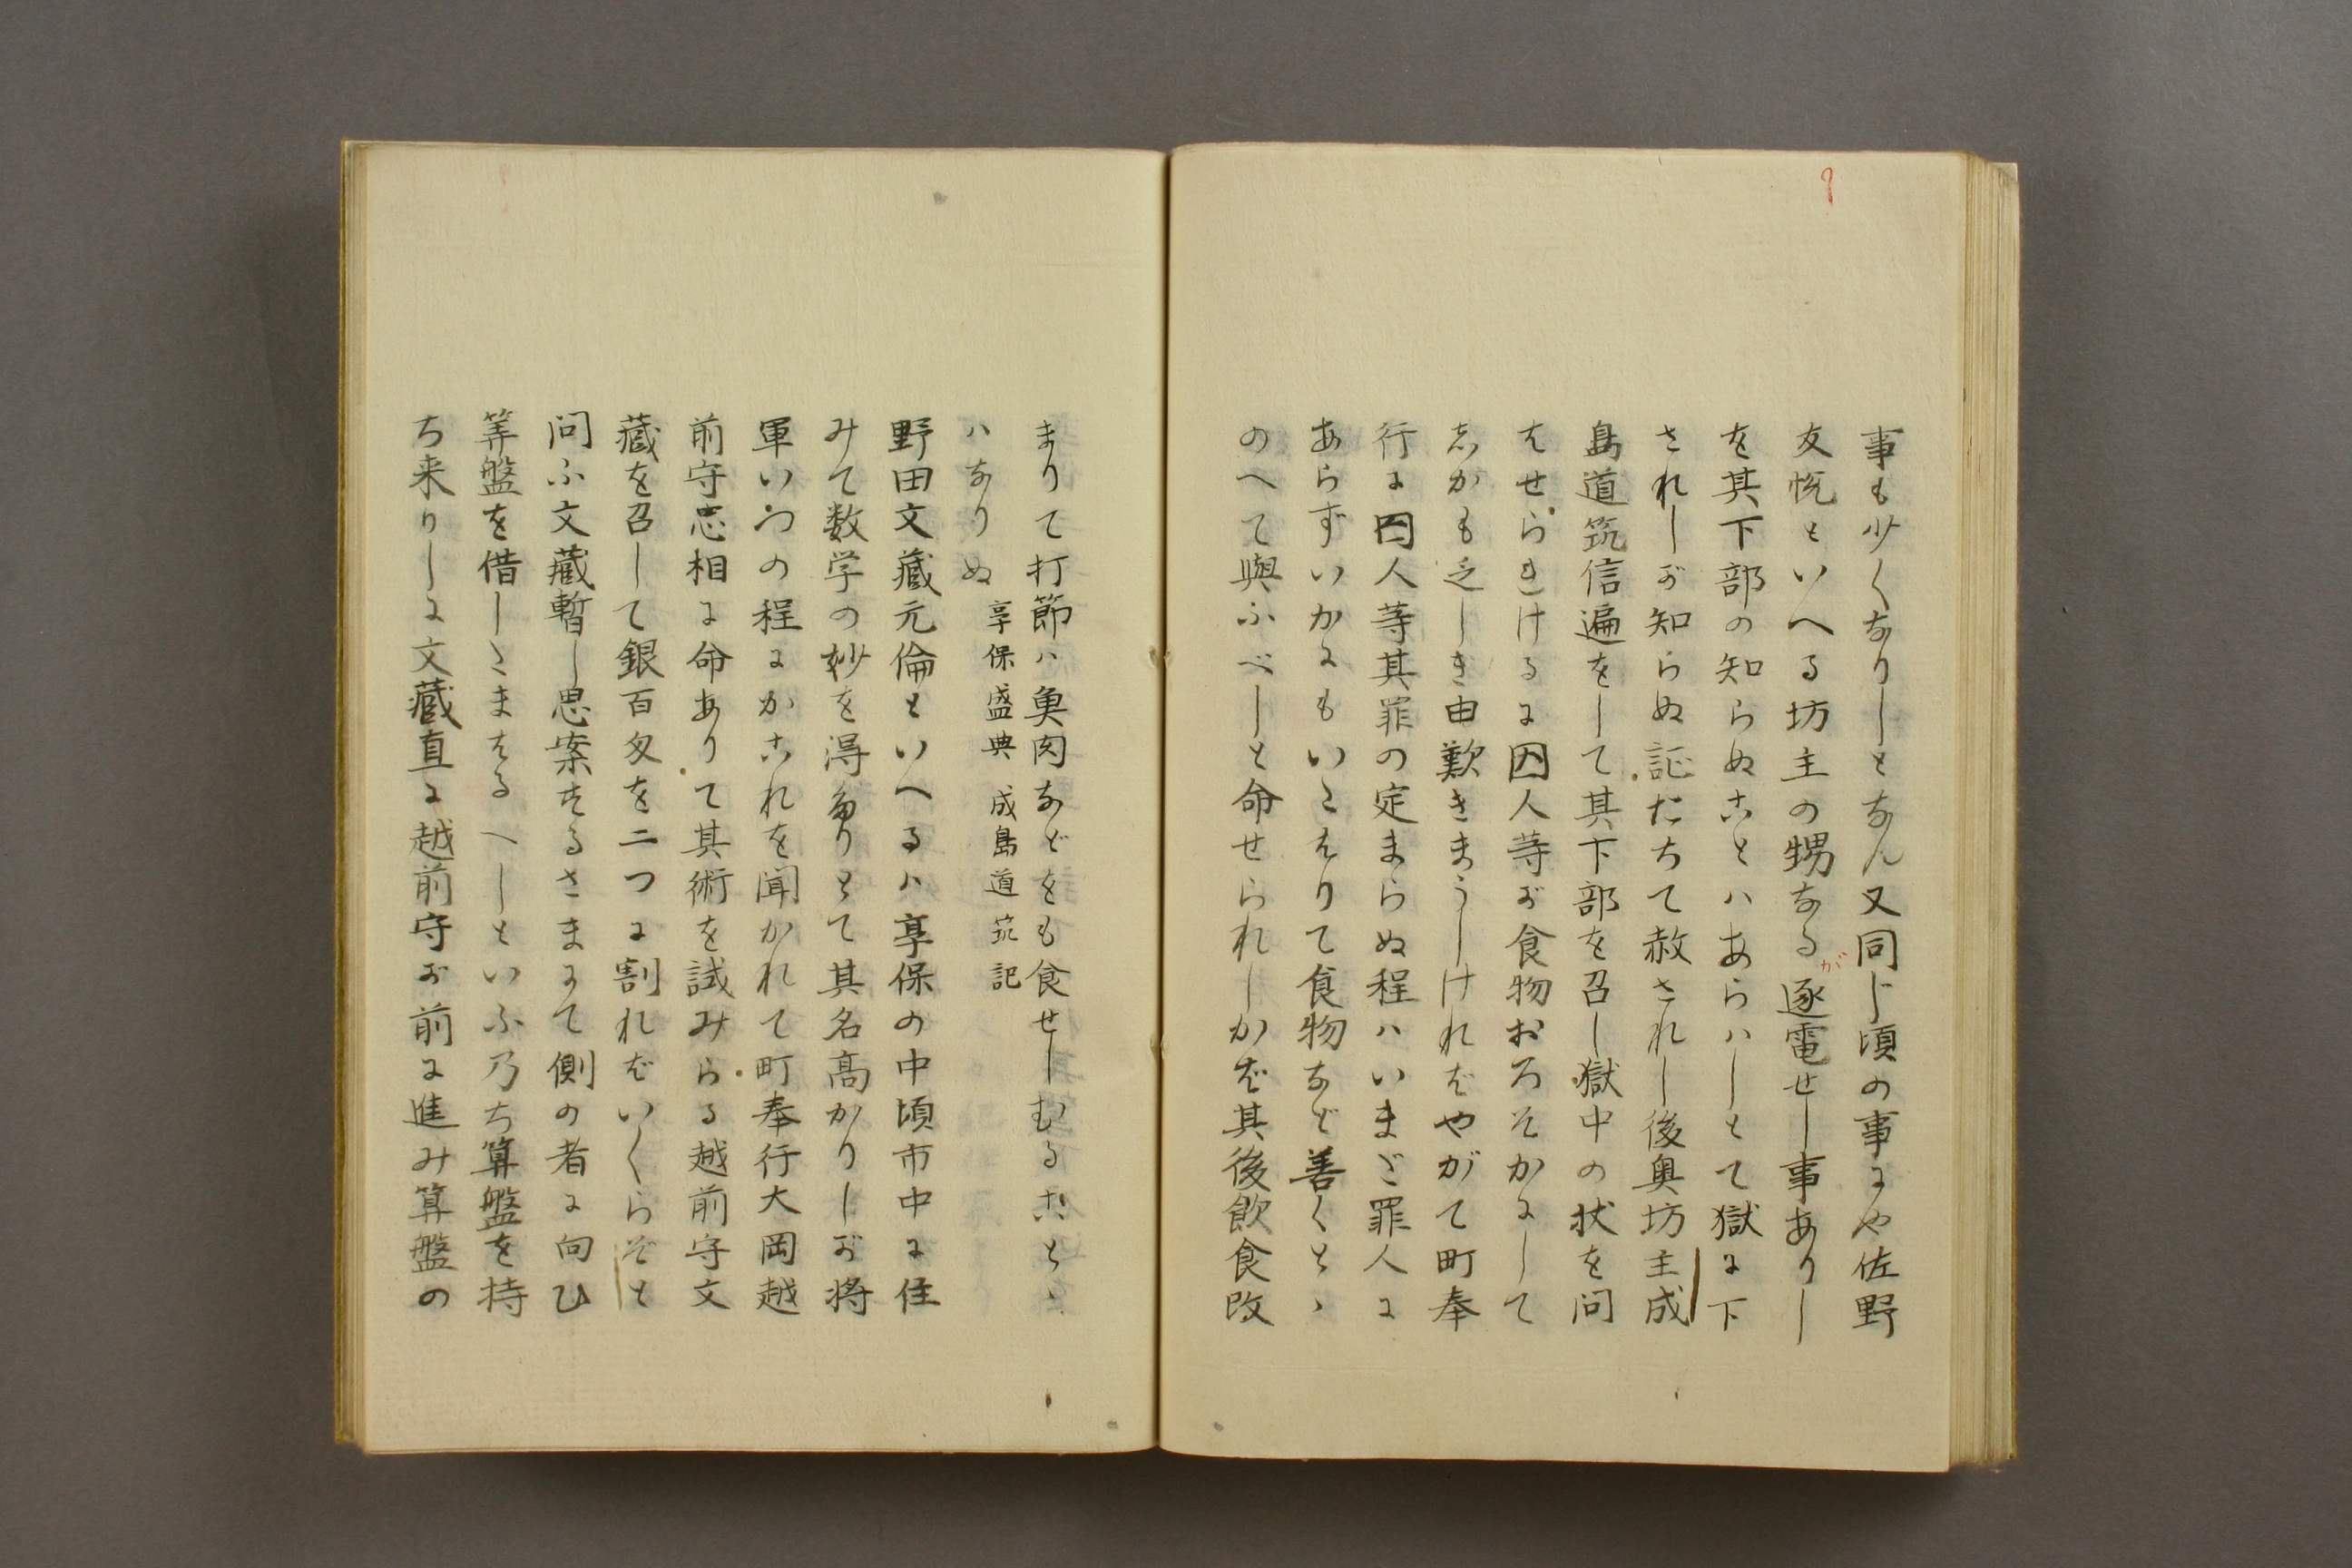 事も少くなりしとなん又同じ頃の事にや佐野
友悦といへる坊主の甥なるが逐電せし事ありし
を其下部の知らぬことハあらハしとて獄に下
されしが知らぬ証たちて赦されし後奥坊主成
島道筑信遍をして其下部を召し獄中の状を問
はせらせけるに囚人等が食物おろそかにして
しかも乏しき由歎きまうしけれバやがて町奉
行に囚人等其罪の定まらぬ程ハいまだ罪人に
あらずいかにもいたはりて食物など善くとゝ
のへて與ふべしと命せられしかバ其後飲食改
まりて打節ハ魚肉などをも食せしむることゝ
ハなりぬ 享保盛典 成島道筑記
野田文蔵元倫といへるハ享保の中頃市中に住
みて数学の妙を得たりとて其名高かりしが将
軍いつの程にかこれを聞かれて町奉行大岡越
前守忠相に命ありて其術を試みらる越前守文
蔵を召して銀百匁を二つに割れバいくらぞと
問ふ文蔵暫し思案するさまにて側の者に向ひ
筭盤を借したまはるへしといふ乃ち算盤を持
ち来りしに文蔵直に越前守が前に進み算盤の